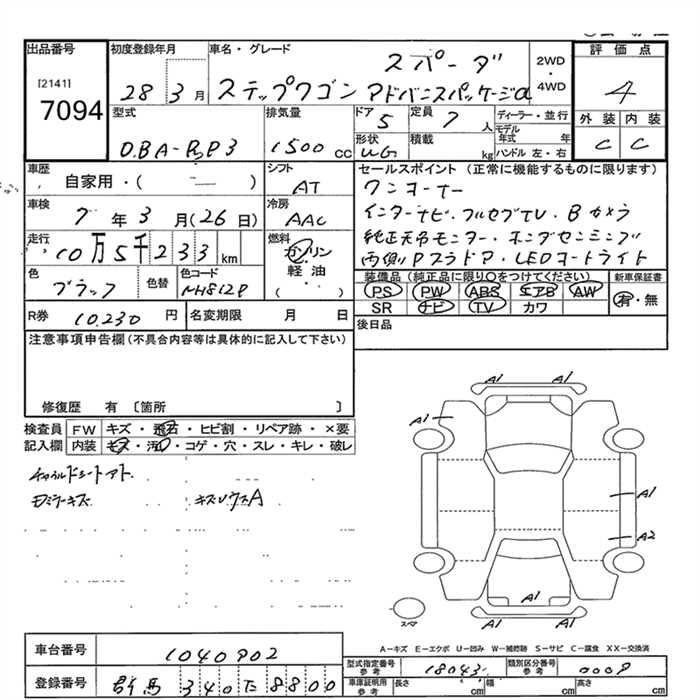 出品番号
[2141]
7094
初度登録年月
28 3月
車名・グレード
スパーダ
ステップワゴン アドバンスパッケージα
2WD
・
4WD
評価点
4
外装 内装
C C
型式
DBA-RP3
排気量
1500 cc
ドア 5
形状 WG
定員 7 人
積載 kg
ディーラー・並行
モデル年式 年
ハンドル 左・右
車歴
自家用・( — )
シフト
AT
セールスポイント (正常に機能するものに限ります)
ワンオーナー
インターナビ・フルセグTV・Bカメラ
純正天吊モニター・ホンダセンシング
両側Pスラドア・LEDオートライト
車検
7年 3月(26日)
冷房
AAC
走行
10万5千233km
燃料
ガソリン
軽油
( )
色
ブラック
色替
色コード
NH812P
装備品(純正品に限り○をつけてください)
PS PW ABS エアB AW
SR ナビ TV カワ
新車保証書
有・無
R券 10,230 円
名変期限 月 日
後日品
注意事項申告欄(不具合内容等は具体的に記入して下さい)
修復歴 有 〔箇所 〕
検査員記入欄
FW キズ・飛石・ヒビ割・リペア跡・×要
内装 キズ・汚れ・コゲ・穴・スレ・キレ・破レ
チャイルドシートアト
キズレウスA
A1 A1
A1
A1
A2
A1
A1 A1
スペア
A-キズ E-エクボ U-凹み W-補修跡 S-サビ C-腐食 XX-交換済
車台番号 1040902
登録番号 群馬 340 た 8800
型式指定番号 参考 18043
類別区分番号 参考 0008
車庫証明用 参考 長さ cm 幅 cm 高さ cm